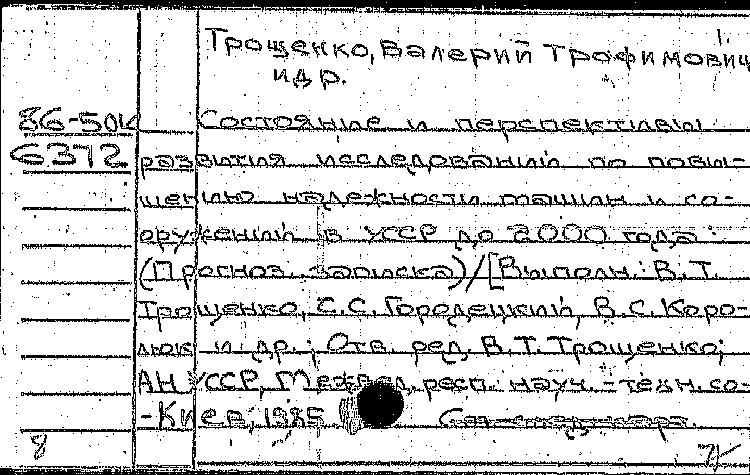 Трощенко, Валерий Трофимович
и др.
86-50к Состояние и перспективы
6372 развития исследований по повы-
шению надежности машин и со-
оружений в УССР до 2000 года :
(Прогноз. записка)/[Выполн.: В.Т.
Трощенко, С.С. Городецкий, В.С. Коро-
люк и др.; Отв. ред. В.Т. Трощенко;
АН УССР, Межвед. респ. науч.-техн. со-
-Киев, 1985
8